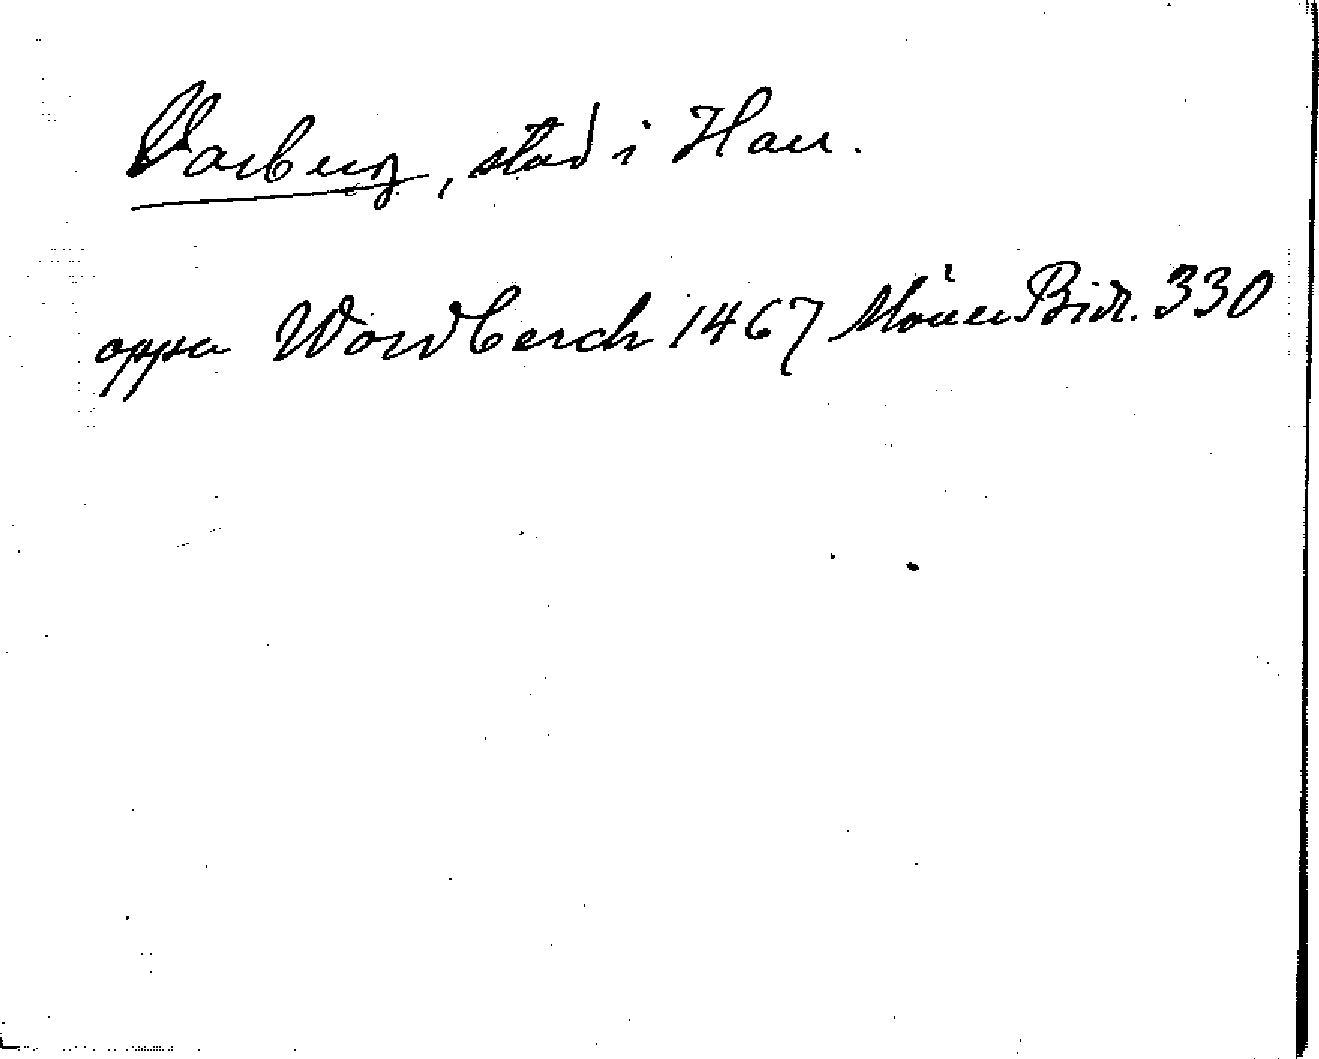 Varberg, stad i Hall.
oppa Wardberch 1467 Möller Bidr. 330